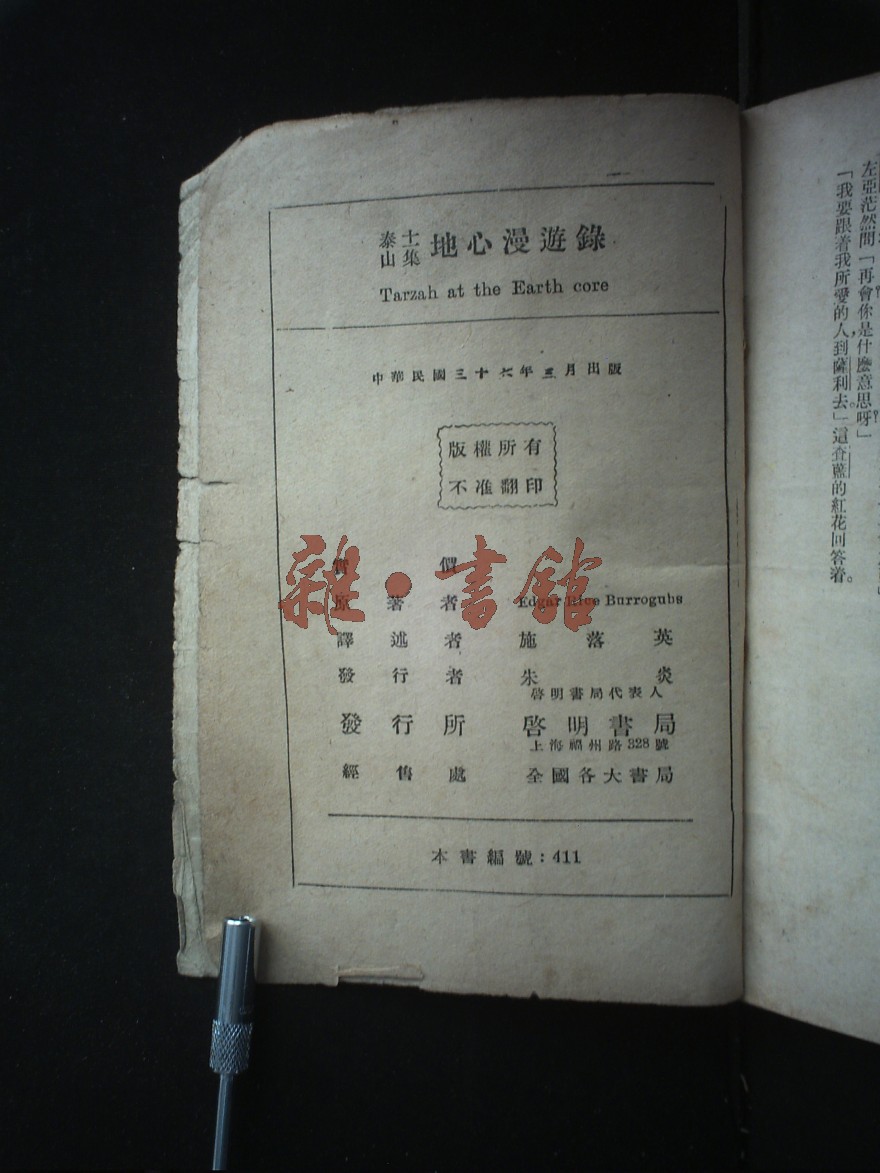 泰山十一集 地心漫遊錄
Tarzah at the Earth core
中華民國三十六年三月出版
版權所有
不准翻印
實價
原著者 Edgar Rice Burrogubs
譯述者 施落英
發行者 朱炎
啓明書局代表人
發行所 啓明書局
上海福州路328號
經售處 全國各大書局
本書編號：411
雜·書館
左亞茫然問「再會？你是什麼意思呀？」
「我要跟着我所愛的人到薩利去。」這查藍的紅花回答着。